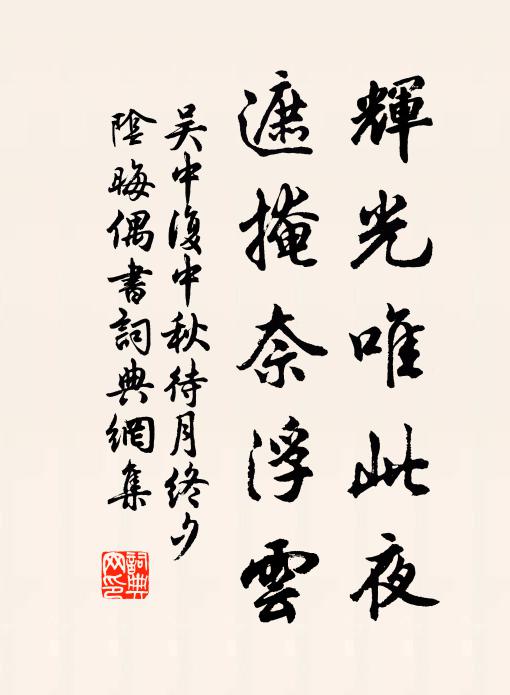 輝光唯此夜
遮掩奈浮雲
吳中復中秋待月終夕
陰晦偶書詞典網集
詞典
网印